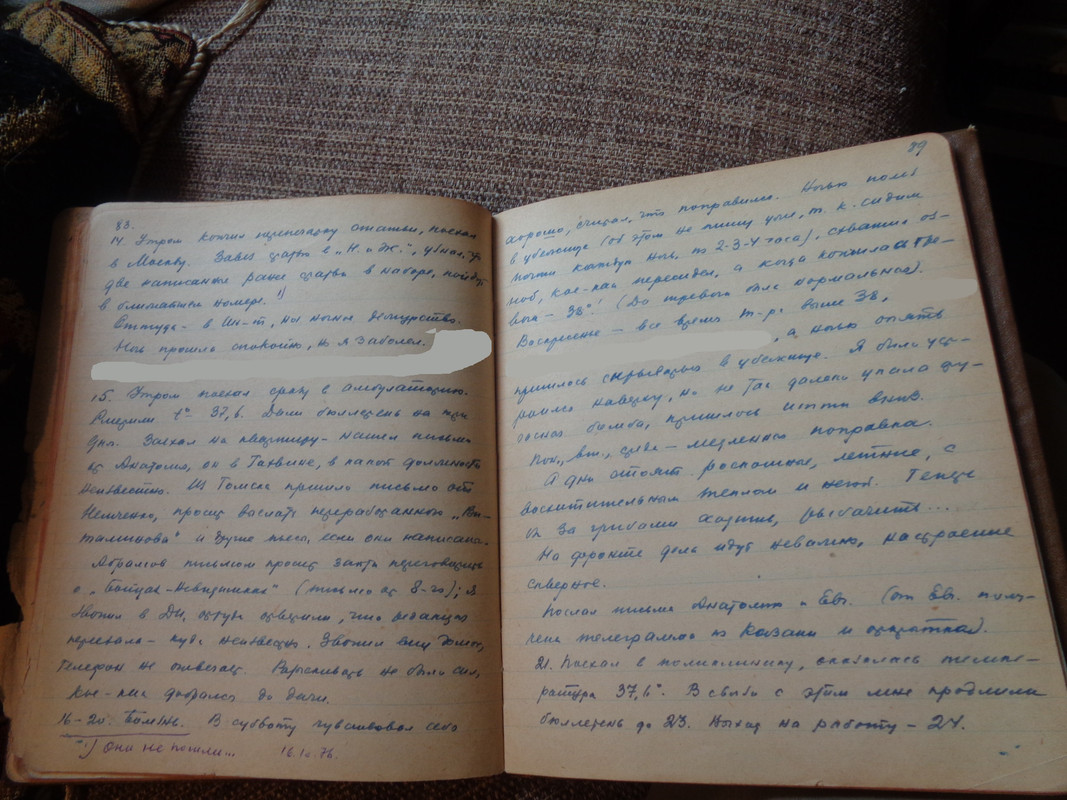 83.
14. Утром кончил переписку статьи, поехал
в Москву. Завез статью в „Н. и Ж.“, узнал, что
две написанные ранее статьи в наборе, пойдут
в ближайшем номере. 1)
Оттуда - в Ин-т, на ночное дежурство.
Ночь прошла спокойно, но я заболел.
15. Утром поехал сразу в амбулаторию.
t° 37,6. Дали бюллетень на три
дня. Заехал на квартиру - нашел письмо
от Анатолия, он в , в какой должности
неизвестно. Из Томска пришло письмо от
, просит выслать переработанного
и другие пьесы, если они написаны.
Абрамов письмом просит зайти переговорить
о „Бойцах-Невидимках“ (письмо от 8-го); я
звонил в ДИ, оттуда ответили, что редакция
переехала - куда неизвестно. Звонил ему домой,
телефон не отвечает. Разыскивать не было сил,
кое-как добрался до дачи.
16-20. Болезнь. В субботу чувствовал себя
1) Они не пошли... 76.
89
хорошо, считал, что поправился. Ночью пошел
в убежище (об этом не пишу уже, т. к. сидим
почти каждую ночь, по 2-3-4 часа), схватил оз-
ноб, кое-как пересидел, а когда кончилась тре-
вога - 38°! (До тревоги была нормальная).
Воскресенье - все время т-ра выше 38,
, а ночью опять
пришлось в убежище. Я было уст-
роился наверху, но не так далеко упала фу-
гасная бомба, пришлось итти вниз.
Пон., вт., среда - медленная поправка.
А дни стоят роскошные, летние, с
восхитительным теплом и негой. Теперь
бы за грибами ходить, рыбачить...
На фронте дела идут неважно, настроение
скверное.
Послал письма Анатолию и Евг. (От Евг. полу-
чена телеграмма из Казани и открытка).
21. Поехал в поликлинику, оказалась темпе-
ратура 37,6°. В связи с этим мне продлили
бюллетень до 23. Выход на работу - 24.